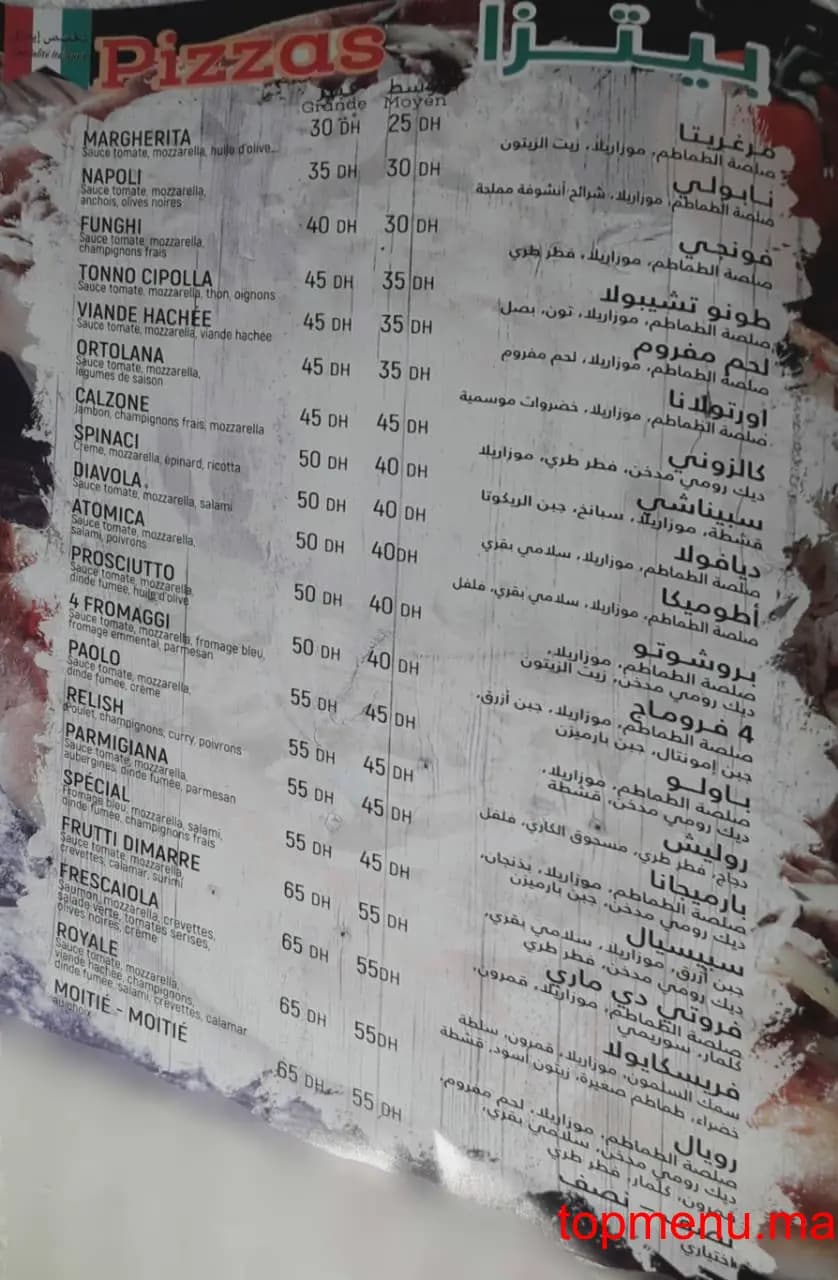 Pizzas
بيتزا
Grande
Moyen
MARGHERITA 30 DH 25 DH
Sauce tomate, mozzarella, huile d'olive...
NAPOLI 35 DH 30 DH
Sauce tomate, mozzarella,
anchois, olives noires
FUNGHI 40 DH 30 DH
Sauce tomate, mozzarella,
champignons frais
TONNO CIPOLLA 45 DH 35 DH
Sauce tomate, mozzarella, thon, oignons
VIANDE HACHÉE 45 DH 35 DH
Sauce tomate, mozzarella, viande hachée
ORTOLANA 45 DH 35 DH
Sauce tomate, mozzarella,
légumes de saison
CALZONE 45 DH 45 DH
Jambon, champignons frais, mozzarella
SPINACI 50 DH 40 DH
Crème, mozzarella, épinard, ricotta
DIAVOLA 50 DH 40 DH
Sauce tomate, mozzarella, salami
ATOMICA 50 DH 40 DH
Sauce tomate, mozzarella,
salami, poivrons
PROSCIUTTO 50 DH 40 DH
Sauce tomate, mozzarella,
dinde fumée, huile d'olive
4 FROMAGGI 50 DH 40 DH
Sauce tomate, mozzarella, fromage bleu,
fromage emmental, parmesan
PAOLO 55 DH 45 DH
Sauce tomate, mozzarella,
dinde fumée, crème
RELISH 55 DH 45 DH
Poulet, champignons, curry, poivrons
PARMIGIANA 55 DH 45 DH
Sauce tomate, mozzarella,
aubergines, dinde fumée, parmesan
SPÉCIAL 55 DH 45 DH
Fromage bleu, mozzarella, salami,
dinde fumée, champignons frais
FRUTTI DIMARRE 65 DH 55 DH
Sauce tomate, mozzarella,
crevettes, calamar, surimi
FRESCAIOLA 65 DH 55 DH
Saumon, mozzarella, crevettes,
salade verte, tomates serises,
olives noires, crème
ROYALE 65 DH 55 DH
Sauce tomate, mozzarella,
viande hachée, champignons,
dinde fumée, salami, crevettes, calamar
MOITIÉ - MOITIÉ 65 DH 55 DH
au choix
مرغريتا
صلصة الطماطم، موزاريلا، زيت الزيتون
نابولي
صلصة الطماطم، موزاريلا، شرائح أنشوفة مملحة
فونجي
صلصة الطماطم، موزاريلا، فطر طري
طونو تشيبولا
صلصة الطماطم، موزاريلا، تون، بصل
لحم مفروم
صلصة الطماطم، موزاريلا، لحم مفروم
اورتولانا
صلصة الطماطم، موزاريلا، خضروات موسمية
كالزوني
ديك رومي مدخن، فطر طري، موزاريلا
سبيناشي
قشطة، موزاريلا، سبانخ، جبن الريكوتا
ديافولا
صلصة الطماطم، موزاريلا، سلامي بقري
أطوميكا
صلصة الطماطم، موزاريلا، سلامي بقري، فلفل
بروشوتو
صلصة الطماطم، موزاريلا،
ديك رومي مدخن، زيت الزيتون
4 فروماج
صلصة الطماطم، موزاريلا، جبن أزرق،
جبن إمونتال، جبن بارميزن
باولو
صلصة الطماطم، موزاريلا،
ديك رومي مدخن، قشطة
روليش
دجاج، فطر طري، مسحوق الكاري، فلفل
بارميجانا
صلصة الطماطم، موزاريلا، بذنجان،
ديك رومي مدخن، جبن بارميزن
سبيسيال
جبن أزرق، موزاريلا، سلامي بقري،
ديك رومي مدخن، فطر طري
فروتي دي ماري
صلصة الطماطم، موزاريلا، قمرون،
كلمار، سوريمي
فريسكايولا
سمك السلمون، موزاريلا، قمرون، سلطة
خضراء، طماطم صغيرة، زيتون أسود، قشطة
رويال
صلصة الطماطم، موزاريلا، لحم مفروم،
ديك رومي مدخن، سلامي بقري،
قمرون، كلمار، فطر طري
نصف - نصف
اختياري
topmenu.ma